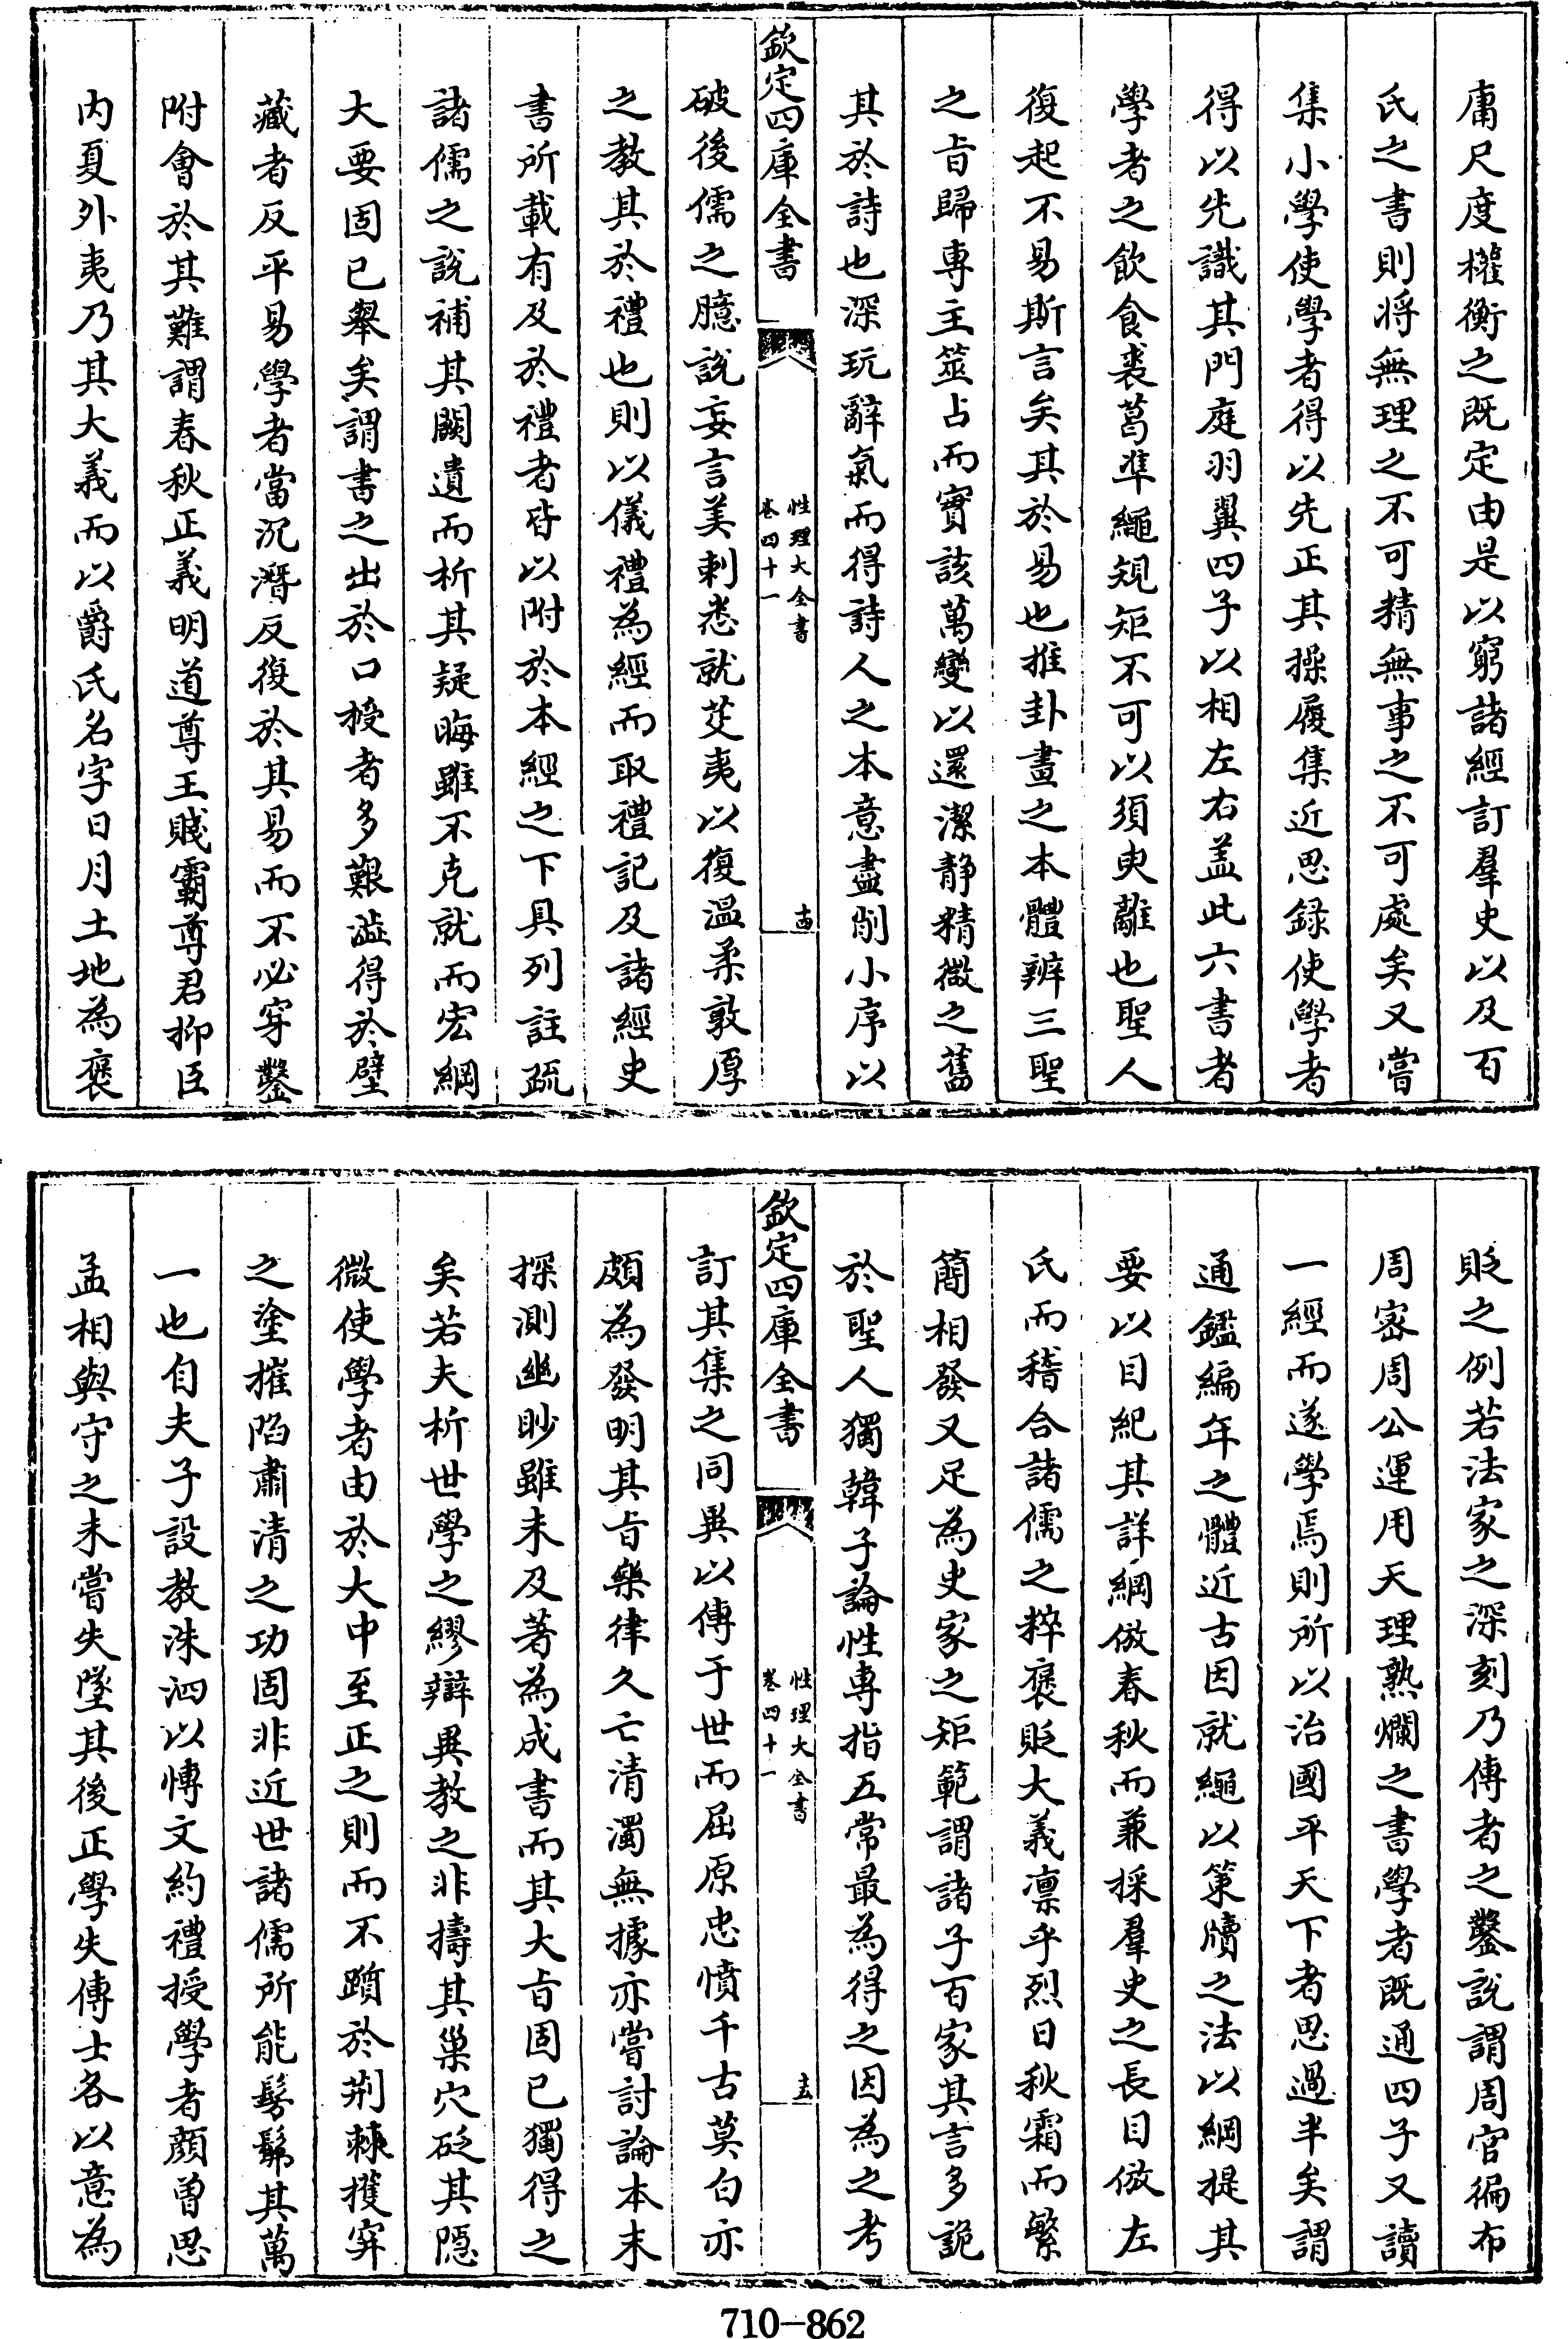 庸尺度權衡之既定由是以窮諸經訂羣史以及百
氏之書則將無理之不可精無事之不可處矣又嘗
集小學使學者得以先正其操履集近思録使學者
得以先識其門庭羽翼四子以相左右葢此六書者
學者之飲食裘葛準繩規矩不可以須臾離也聖人
復起不易斯言矣其於易也推卦畫之本體辨三聖
之旨歸專主筮占而實該萬變以還潔静精微之舊
其於詩也深玩辭氣而得詩人之本意盡削小序以
欽定四庫全書
性理大全書
卷四十一
十四
破後儒之臆說妄言美刺悉就芟夷以復温柔敦厚
之教其於禮也則以儀禮為經而取禮記及諸經史
書所載有及於禮者皆以附於本經之下具列註疏
諸儒之說補其闕遺而析其疑晦雖不克就而宏綱
大要固已舉矣謂書之出於口授者多艱澁得於壁
藏者反平易學者當沉潛反復於其易而不必穿鑿
附會於其難謂春秋正義明道尊王賤霸尊君抑臣
内夏外夷乃其大義而以爵氏名字日月土地為褒
貶之例若法家之深刻乃傳者之鑿說謂周官徧布
周密周公運用天理熟爛之書學者既通四子又讀
一經而遂學焉則所以治國平天下者思過半矣謂
通鑑編年之體近古因就繩以策牘之法以綱提其
要以目紀其詳綱倣春秋而兼採羣史之長目倣左
氏而稽合諸儒之粹褒貶大義凛乎烈日秋霜而繁
簡相發又足為史家之矩範謂諸子百家其言多詭
於聖人獨韓子論性專指五常最為得之因為之考
欽定四庫全書
性理大全書
卷四十一
十五
訂其集之同異以傳于世而屈原忠憤千古莫白亦
頗為發明其旨樂律久亡清濁無據亦嘗討論本末
探測幽眇雖未及著為成書而其大旨固已獨得之
矣若夫析世學之繆辯異教之非擣其巢穴砭其隱
微使學者由於大中至正之則而不躓於荆棘擭穽
之塗摧陷肅清之功固非近世諸儒所能髣髴其萬
一也自夫子設教洙泗以博文約禮授學者顏曾思
孟相與守之未嘗失墜其後正學失傳士各以意為
710-862